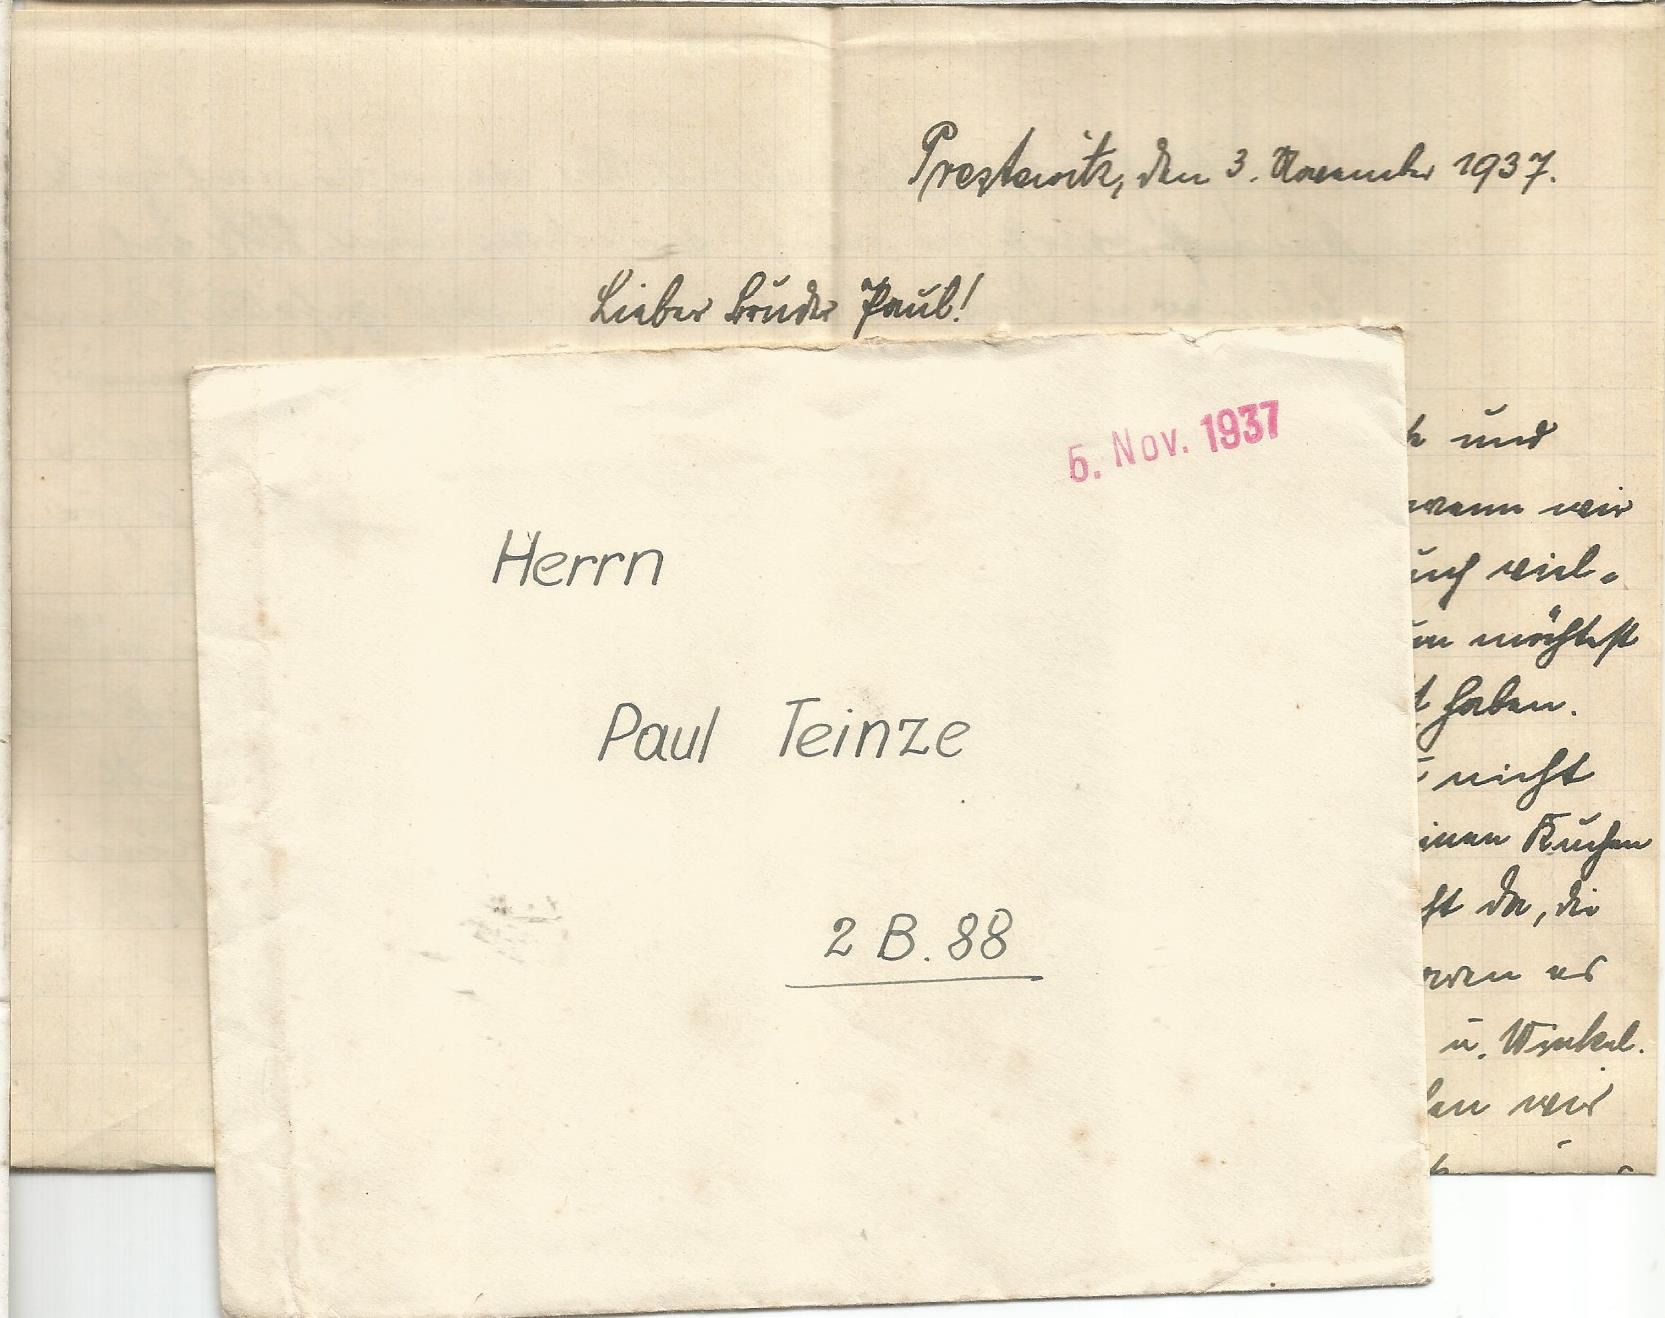 Prestewitz, den 3. November 1937.
Lieber Bruder Paul!
5. Nov. 1937
Herrn
Paul Teinze
2 B. 88
und
wenn wir
viel-
möchtest
haben.
nicht
Kuchen
da, die
es
u. Winkel.
wir